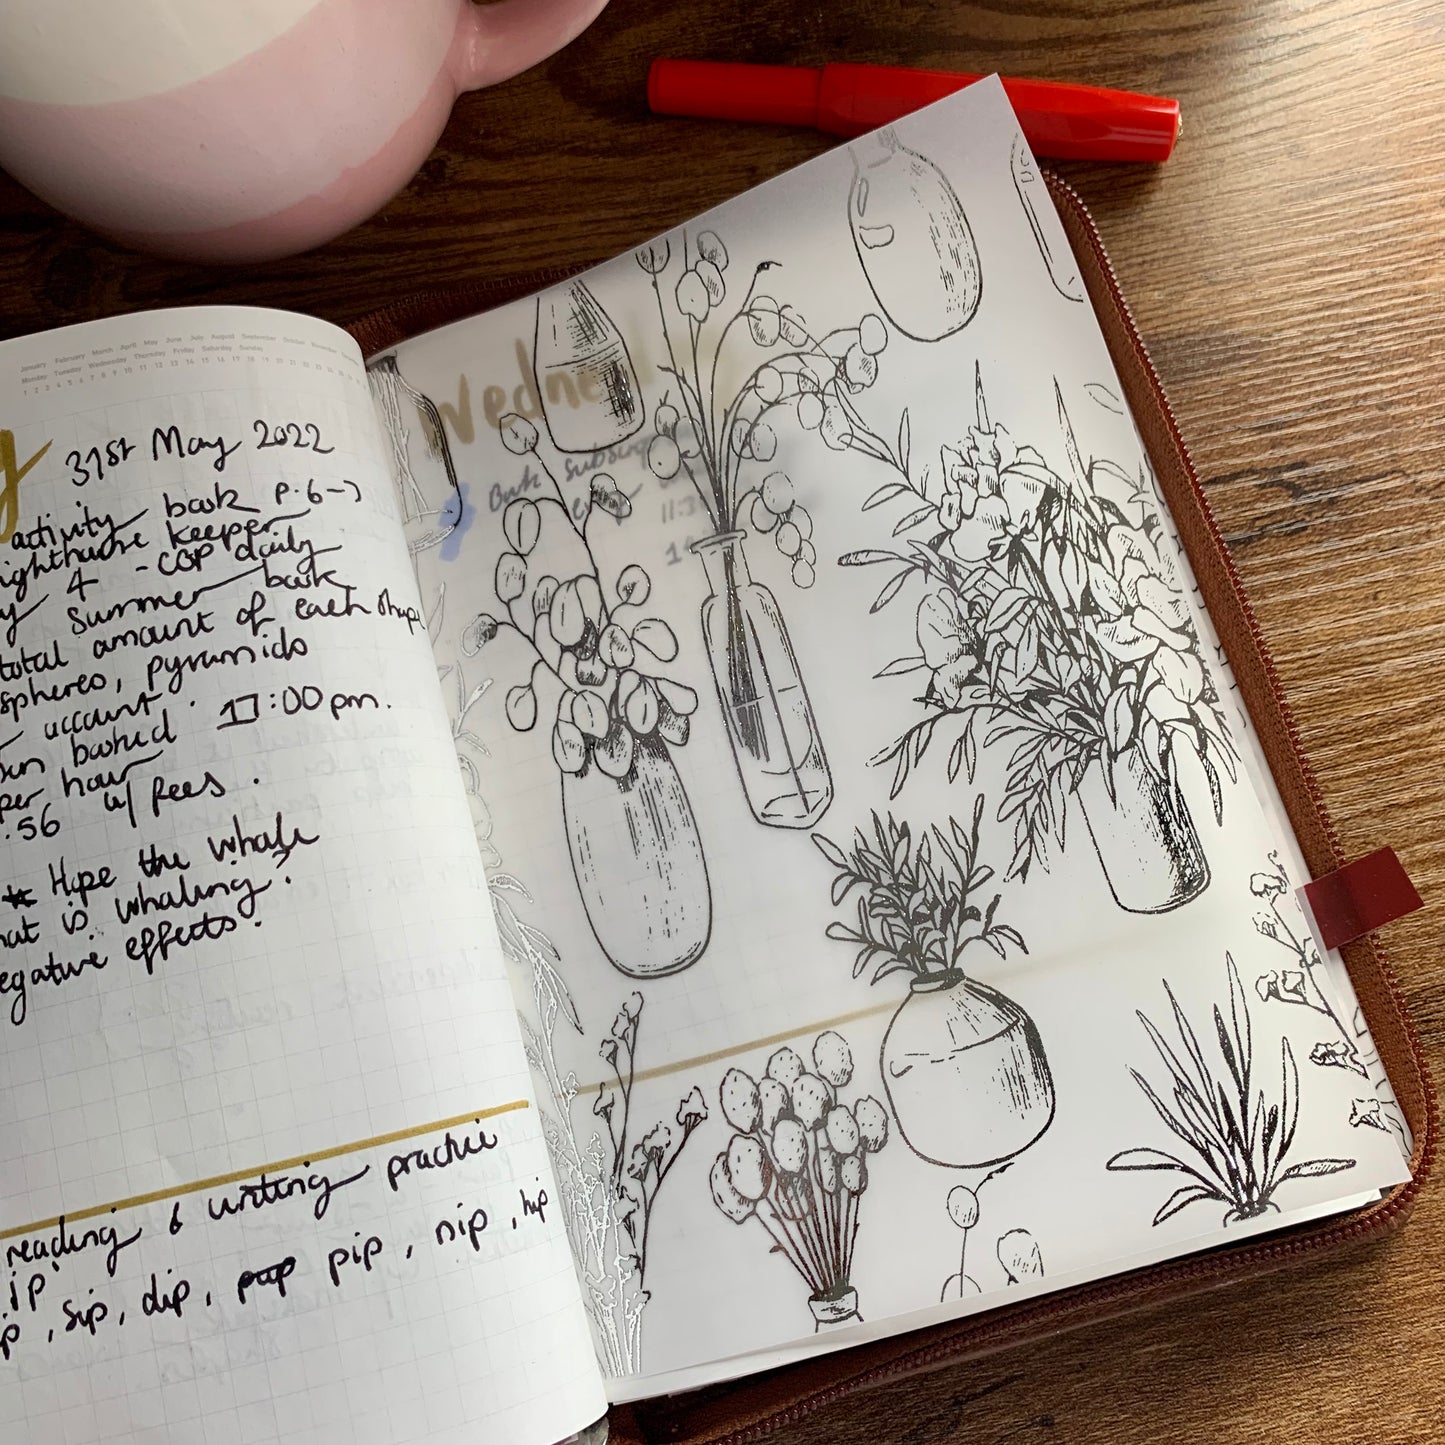 January February March April May June July August September October November December
Monday Tuesday Wednesday Thursday Friday Saturday Sunday
1 2 3 4 5 6 7 8 9 10 11 12 13 14 15 16 17 18 19 20 21
y 31st May 2022
activity book p.6→
ighthouse keeper
y 4 - COP daily
y Summer book
total amount of each shape
spheres, pyramids
account.
booked 17:00pm.
per hour
.56 w/ fees.
* Hope the whale
hat is whaling?
egative effects.
reading & writing practice
ip'
p, sip, dip, pip, nip, hip
Wednes
Book subscrip
11:3